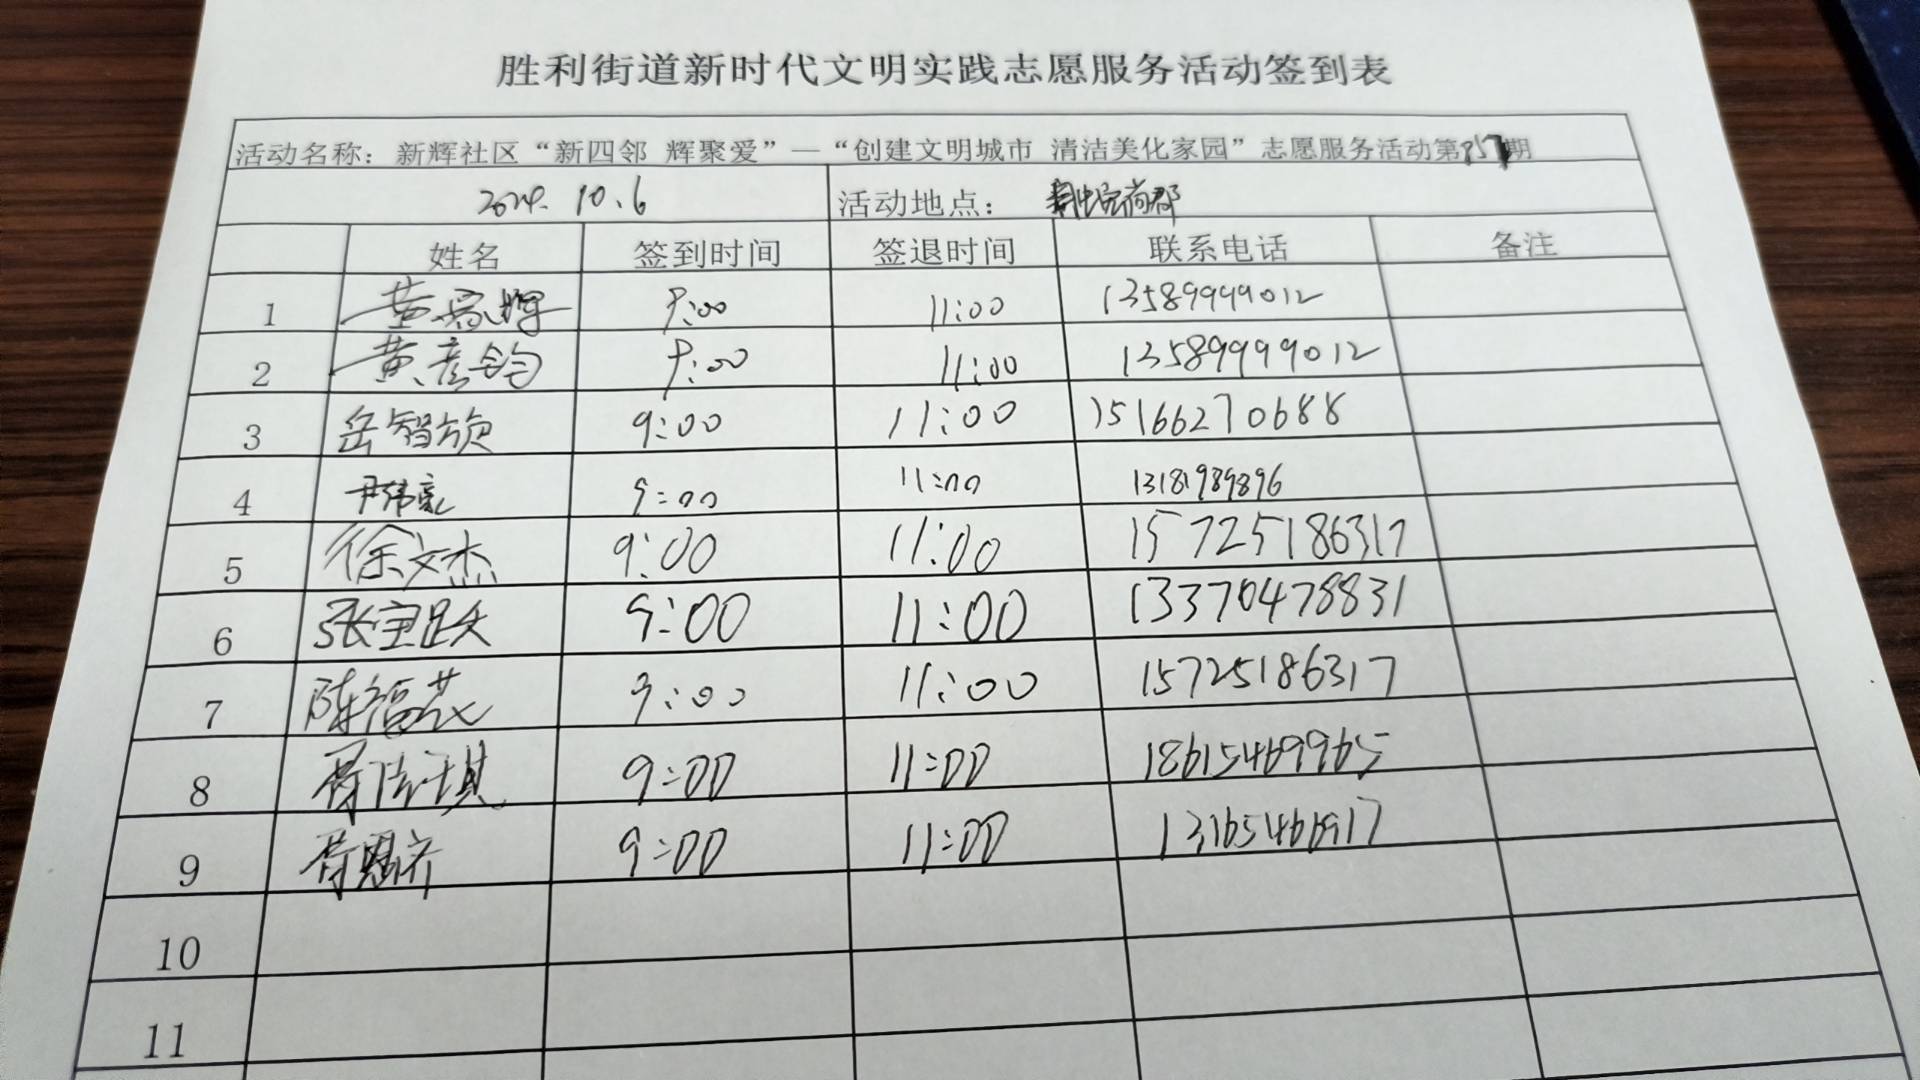 胜利街道新时代文明实践志愿服务活动签到表
活动名称：新辉社区“新四邻 辉聚爱”—“创建文明城市 清洁美化家园”志愿服务活动第857期
2024.10.6 活动地点：
姓名 签到时间 签退时间 联系电话 备注
1 黄家辉 9:00 11:00 13589999012
2 黄彦钧 9:00 11:00 13589999012
3 岳智颀 9:00 11:00 15166270688
4 尹伟豪 9:00 11:00 13181989896
5 徐文杰 9:00 11:00 15725186317
6 张宝跃 9:00 11:00 13370478831
7 陈福茂 9:00 11:00 15725186317
8 9:00 11:00 18615469965
9 9:00 11:00 13165466917
10
11